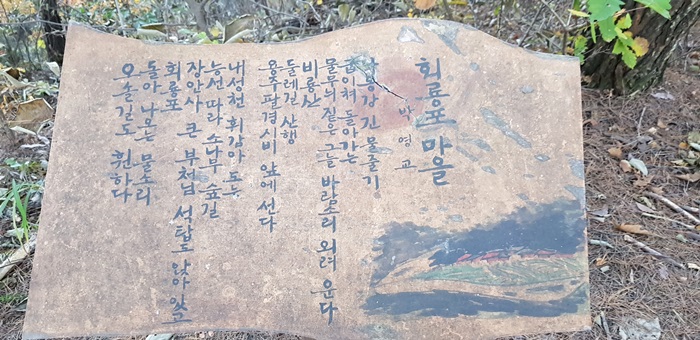 회룡포 마을
박영교
낙동강 긴 물줄기
굽이쳐 돌아가는
물무늬 짙은 그늘 바람소리 외려 운다
비룡산
둘레길 산행
용주팔경시비 앞에 선다
내성천 휘감아 도는
능선 따라 소나무 숲길
장안사 큰 부처님 석탑도 앉아 있고
회룡포
돌아 나오는 물소리
오솔길도 훤하다